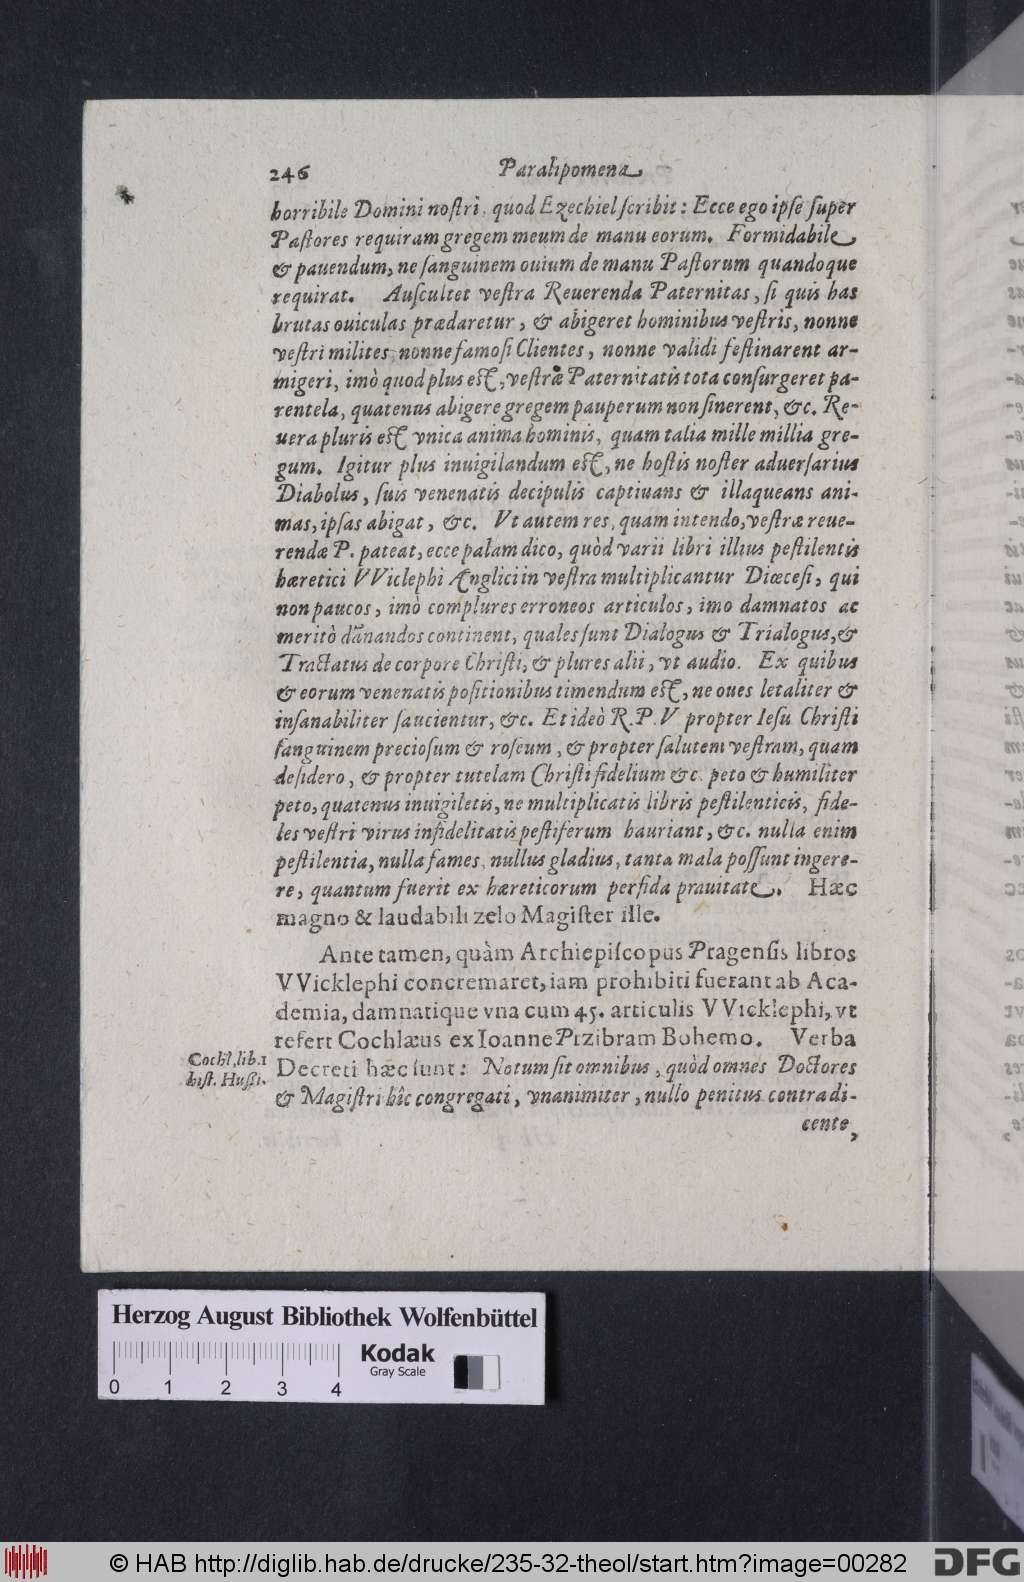 246 Paralipomena
horribile Domini nostri, quod Ezechiel scribit: Ecce ego ipse super
Pastores requiram gregem meum de manu eorum. Formidabile
& pauendum, ne sanguinem ouium de manu Pastorum quandoque
requirat. Auscultet vestra Reuerenda Paternitas, si quis has
brutas ouiculas prædaretur, & abigeret hominibus vestris, nonne
vestri milites, nonne famosi Clientes, nonne validi festinarent ar-
migeri, imò quod plus est, vestræ Paternitatis tota consurgeret pa-
rentela, quatenus abigere gregem pauperum non sinerent, &c. Re-
uera pluris est vnica anima hominis, quam talia mille millia gre-
gum. Igitur plus inuigilandum est, ne hostis noster aduersarius
Diabolus, suis venenatis decipulis captiuans & illaqueans ani-
mas, ipsas abigat, &c. Vt autem res, quam intendo, vestræ reue-
rendæ P. pateat, ecce palam dico, quòd varii libri illius pestilentis
hæretici VViclephi Anglici in vestra multiplicantur Diœcesi, qui
non paucos, imò complures erroneos articulos, imo damnatos ac
meritò dãnandos continent, quales sunt Dialogus & Trialogus, &
Tractatus de corpore Christi, & plures alii, vt audio. Ex quibus
& eorum venenatis positionibus timendum est, ne oues letaliter &
insanabiliter saucientur, &c. Et ideò R. P. V propter Iesu Christi
sanguinem preciosum & roseum, & propter salutem vestram, quam
desidero, & propter tutelam Christi fidelium &c. peto & humiliter
peto, quatenus inuigiletis, ne multiplicatis libris pestilenticis, fide-
les vestri virus infidelitatis pestiferum hauriant, &c. nulla enim
pestilentia, nulla fames, nullus gladius, tanta mala possunt ingere-
re, quantum fuerit ex hæreticorum perfida prauitate. Hæc
magno & laudabili zelo Magister ille.
Ante tamen, quàm Archiepiscopus Pragensis libros
VVicklephi concremaret, iam prohibiti fuerant ab Aca-
demia, damnatique vna cum 45. articulis VVicklephi, vt
refert Cochlæus ex Ioanne Przibram Bohemo. Verba
Decreti hæc sunt: Notum sit omnibus, quòd omnes Doctores
& Magistri hîc congregati, vnanimiter, nullo penitus contradi-
cente,
Cochl. lib. 1
hist. Hussi.
Herzog August Bibliothek Wolfenbüttel
Kodak
Gray Scale
0 1 2 3 4
© HAB http://diglib.hab.de/drucke/235-32-theol/start.htm?image=00282
DFG